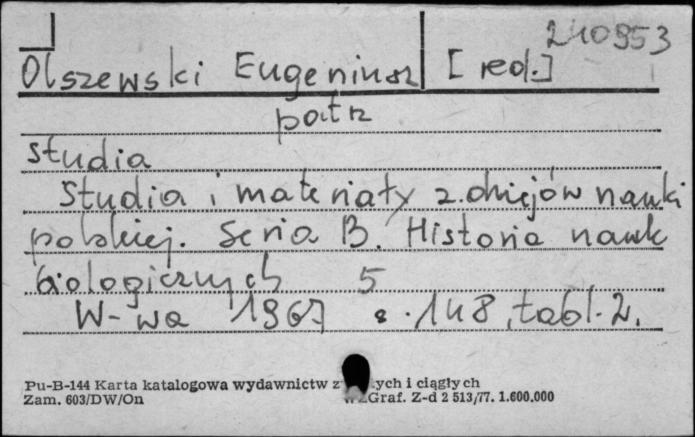 240953
Olszewski Eugeniusz [red.]
patrz
studia
Studia i materiały z dziejów nauki
polskiej. Seria B. Historia nauk
biologicznych 5
W-wa 1967 s. 148, tabl. 2.
Pu-B-144 Karta katalogowa wydawnictw ych i ciągłych
Zam. 603/DW/On Graf. Z-d 2 513/77. 1.600.000